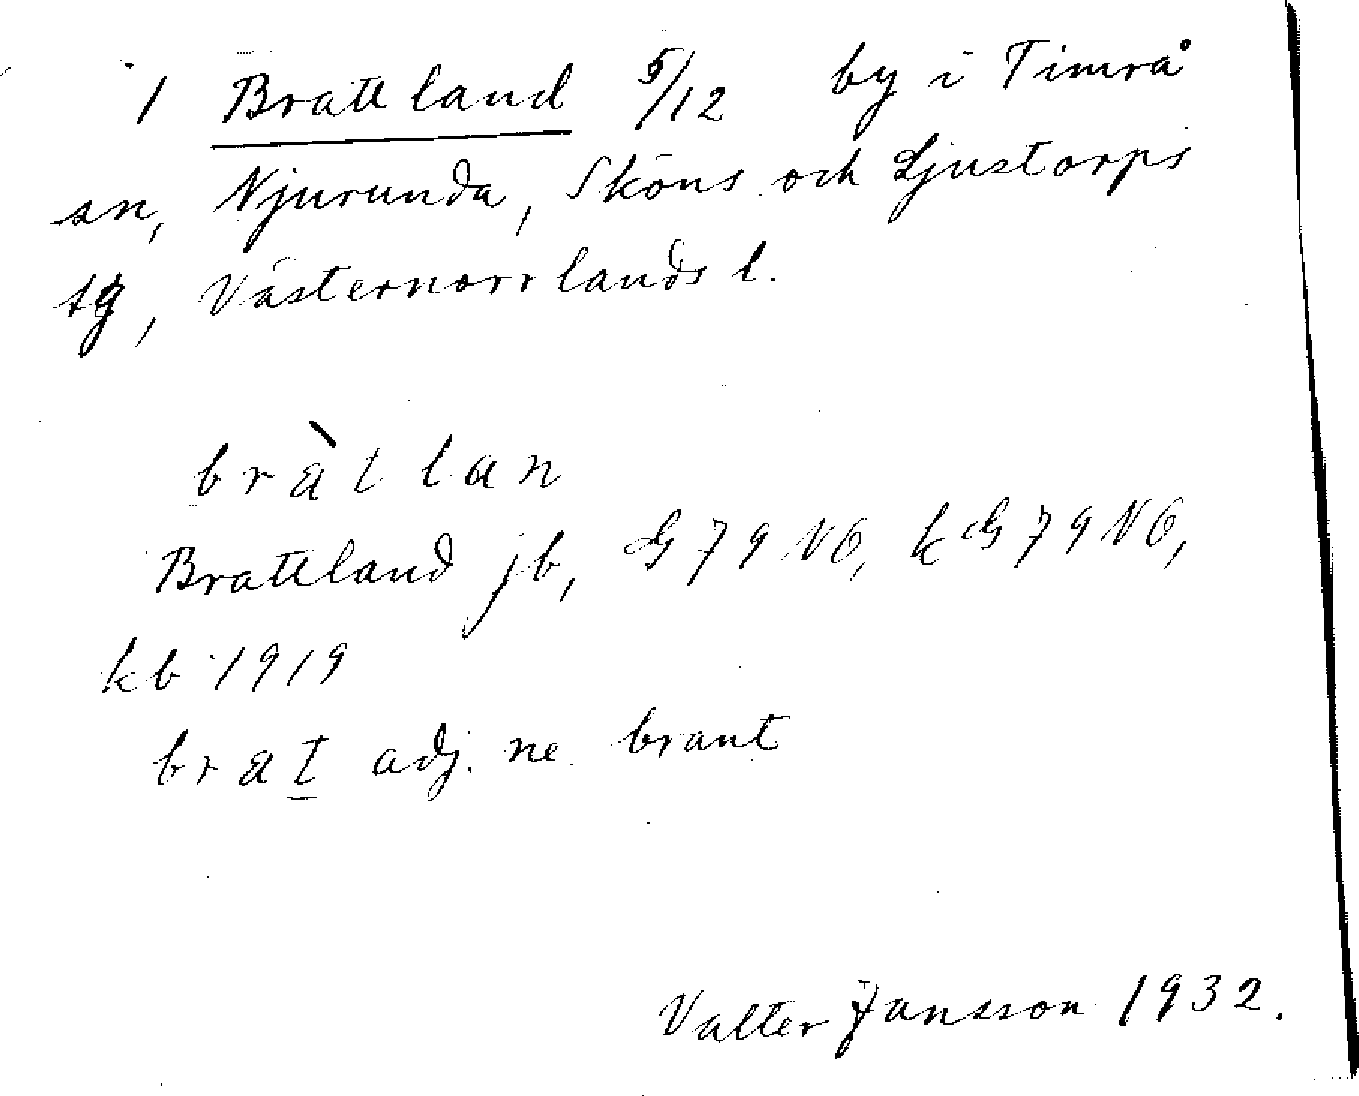 1 Brattland 5/12 by i Timrå
sn, Njurunda, Sköns och Ljustorps
tg, Västernorrlands l.
bràt lan
Brattland jb, G 79 NO, kG 79 NO,
kb 1919
brat adj. ne. brant
Valter Jansson 1932.